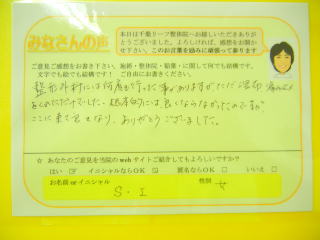 みなさんの声
本日は千葉リーフ整体院へお越しいただきありがとうございました。よろしければ、感想をお聞かせ下さい。このお言葉を励みに頑張って参ります
ご意見ご感想をお書き下さい。施術・整体院・給業に関して何でも結構です。
文字でも絵でも結構です! ご自由にお書き下さい。
整形外科には何度も行った事がありますがただ湿布
をくれただけでした。結局的には良くならなかったのですが
ここに来て良くなり、ありがとうございました。
☆ あなたのご意見を当院のwebサイトご紹介してもよろしいですか?
はい イニシャルならOK 匿名ならOK いいえ
お名前orイニシャル 性別
S・I 女